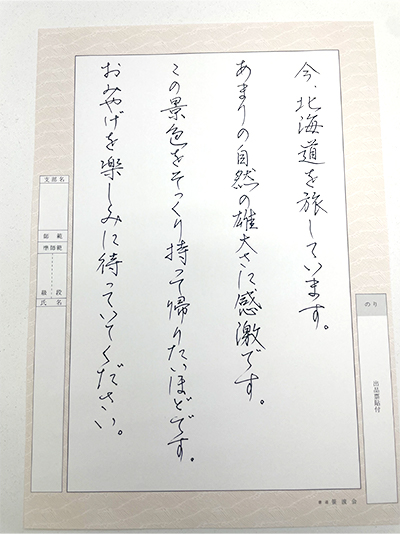 今、北海道を旅しています。
あまりの自然の雄大さに感激です。
この景色をそっくり持って帰りたいほどです。
おみやげを楽しみに待っていてください。
支部名
師範
準師範
級 段
氏名
のり
出品票貼付